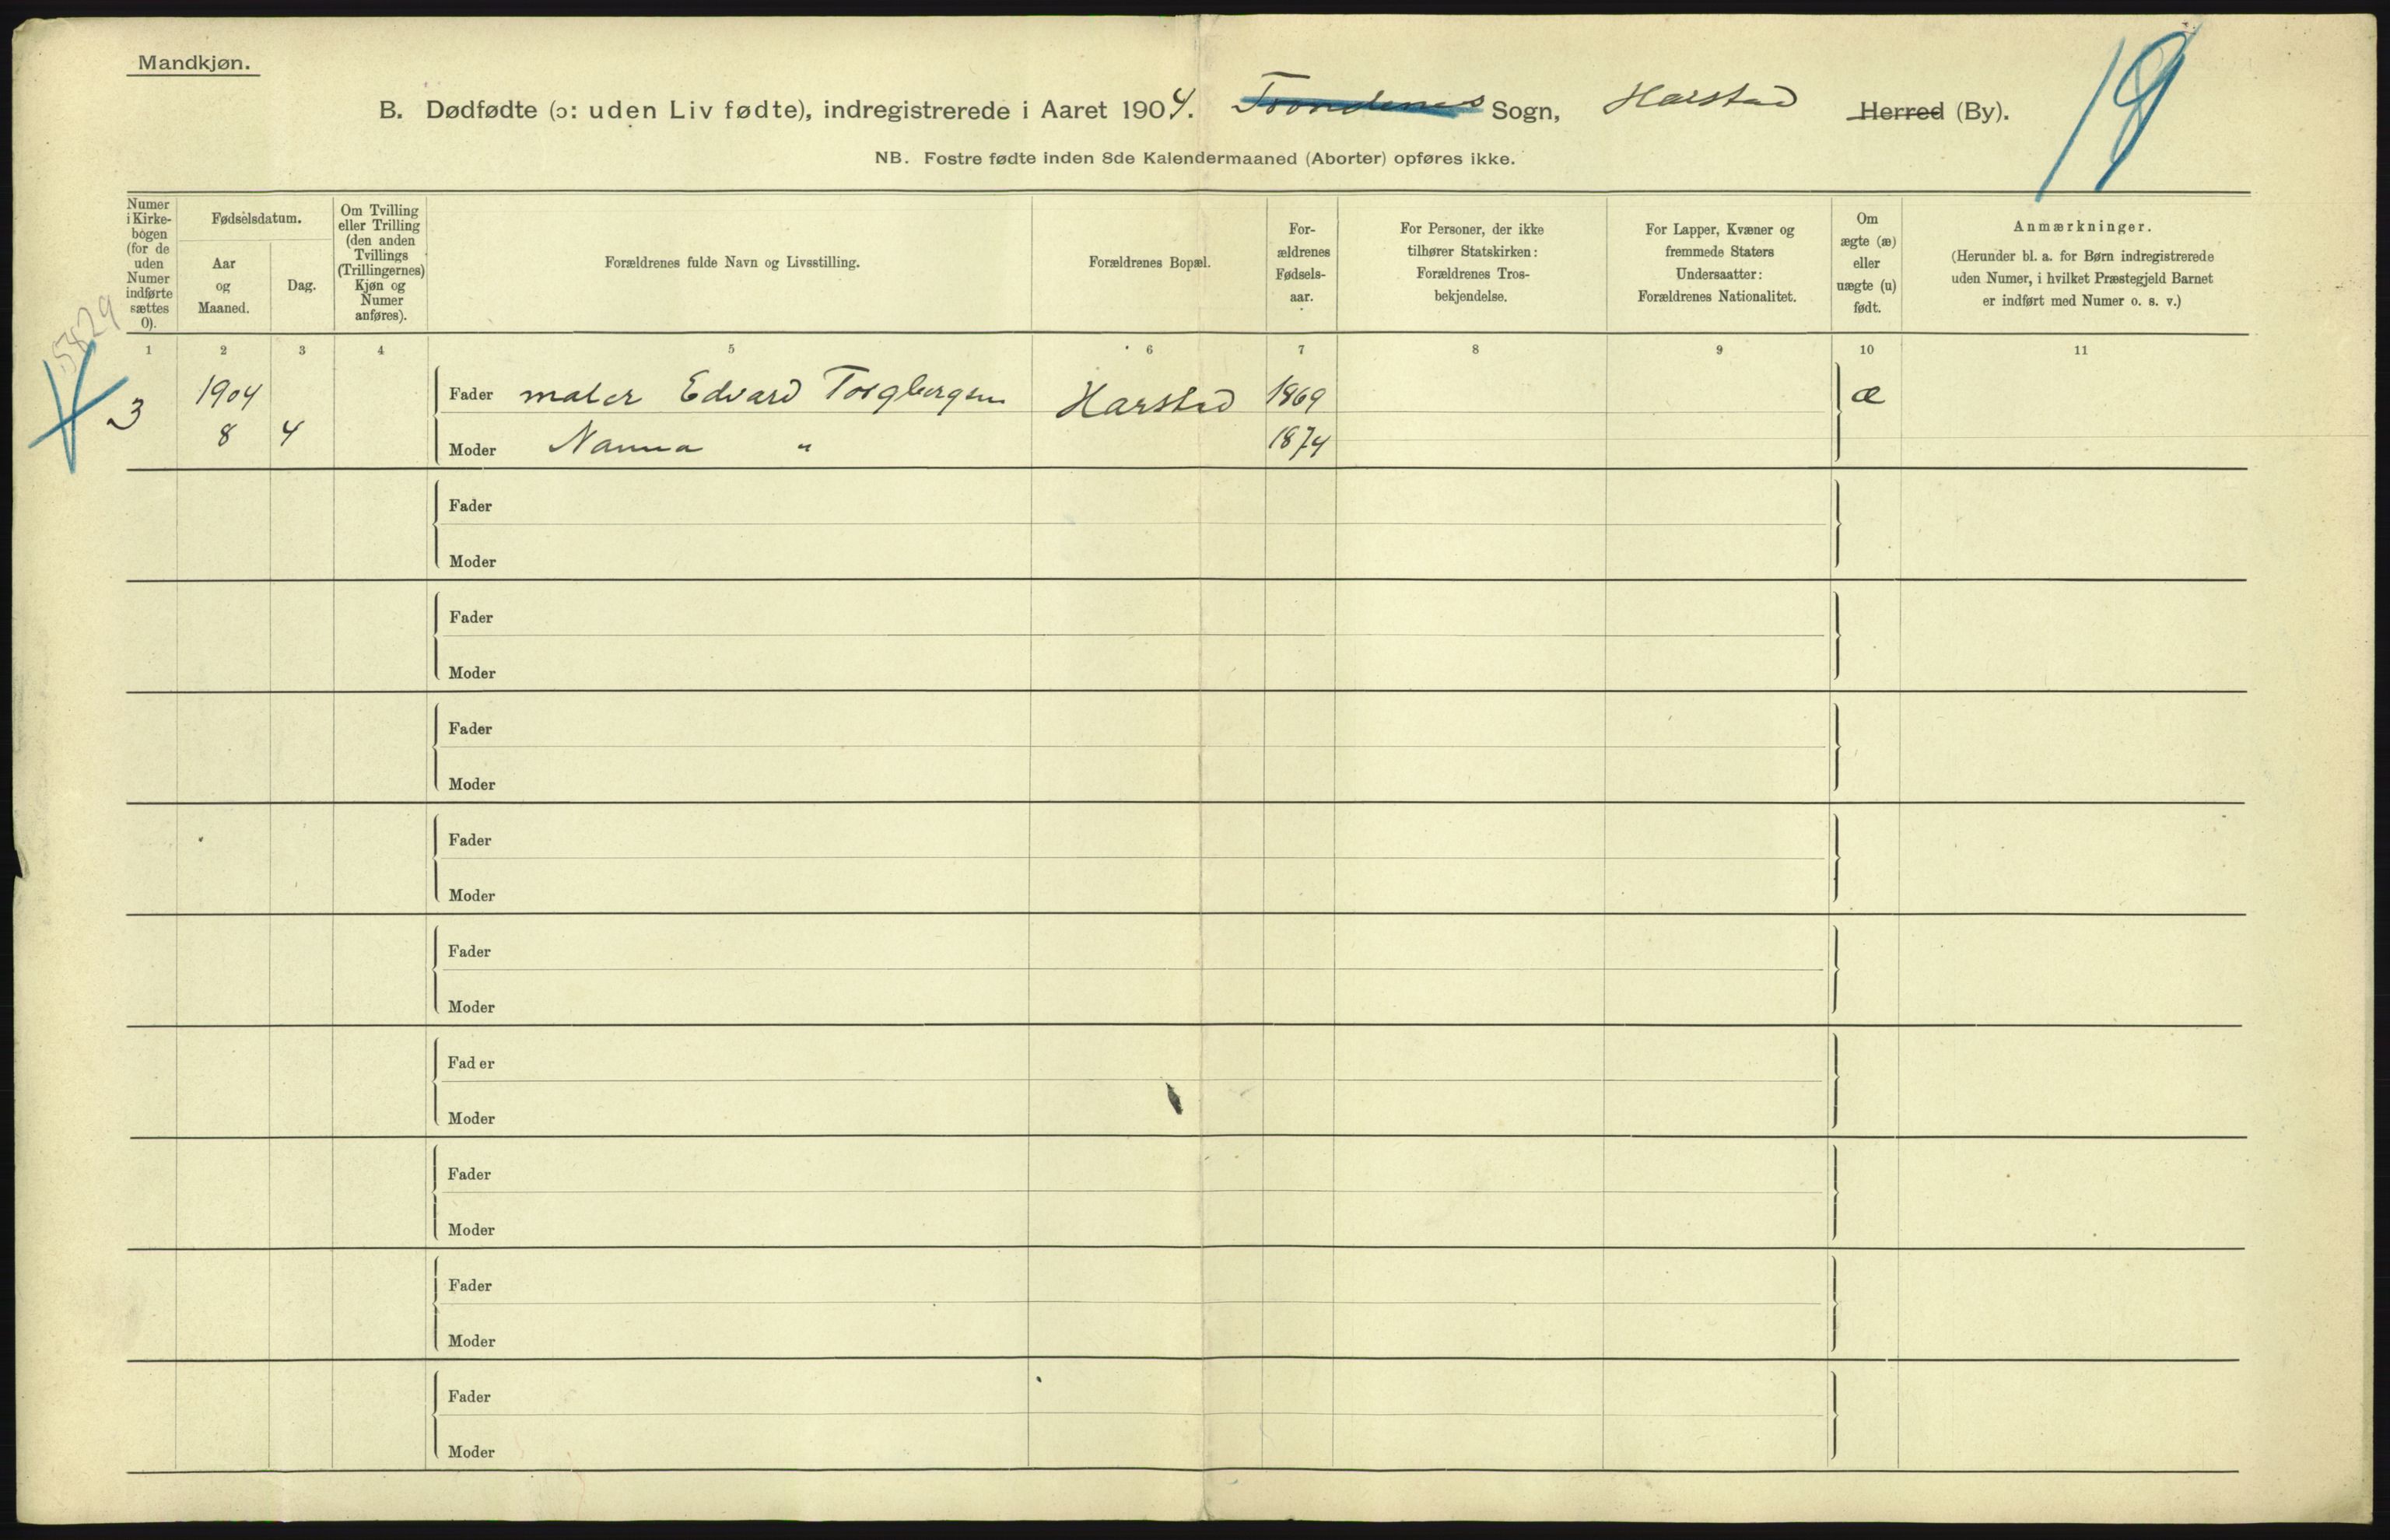 Mandkjøn.
B. Dødfødte (ɔ: uden Liv fødte), indregistrerede i Aaret 1904. Trondenes Sogn, Harstad Herred (By).
19
NB. Fostre fødte inden 8de Kalendermaaned (Aborter) opføres ikke.
Numer
i Kirke-
bogen
(for de
uden
Numer
indførte
sættes
0).
Fødselsdatum.
Aar
og
Maaned.
Dag.
Om Tvilling
eller Trilling
(den anden
Tvillings
(Trillingernes)
Kjøn og
Numer
anføres).
Forældrenes fulde Navn og Livsstilling.
Forældrenes Bopæl.
For-
ældrenes
Fødsels-
aar.
For Personer, der ikke
tilhører Statskirken:
Forældrenes Tros-
bekjendelse.
For Lapper, Kvæner og
fremmede Staters
Undersaatter:
Forældrenes Nationalitet.
Om
ægte (æ)
eller
uægte (u)
født.
Anmærkninger.
(Herunder bl. a. for Børn indregistrerede
uden Numer, i hvilket Præstegjeld Barnet
er indført med Numer o. s. v.)
1 2 3 4 5 6 7 8 9 10 11
3 1904 Fader maler Edvard Torgbergsen Harstad 1869 æ
8 4 Moder Nanna " 1874
Fader
Moder
Fader
Moder
Fader
Moder
Fader
Moder
Fader
Moder
Fader
Moder
Fader
Moder
Fader
Moder
Fader
Moder